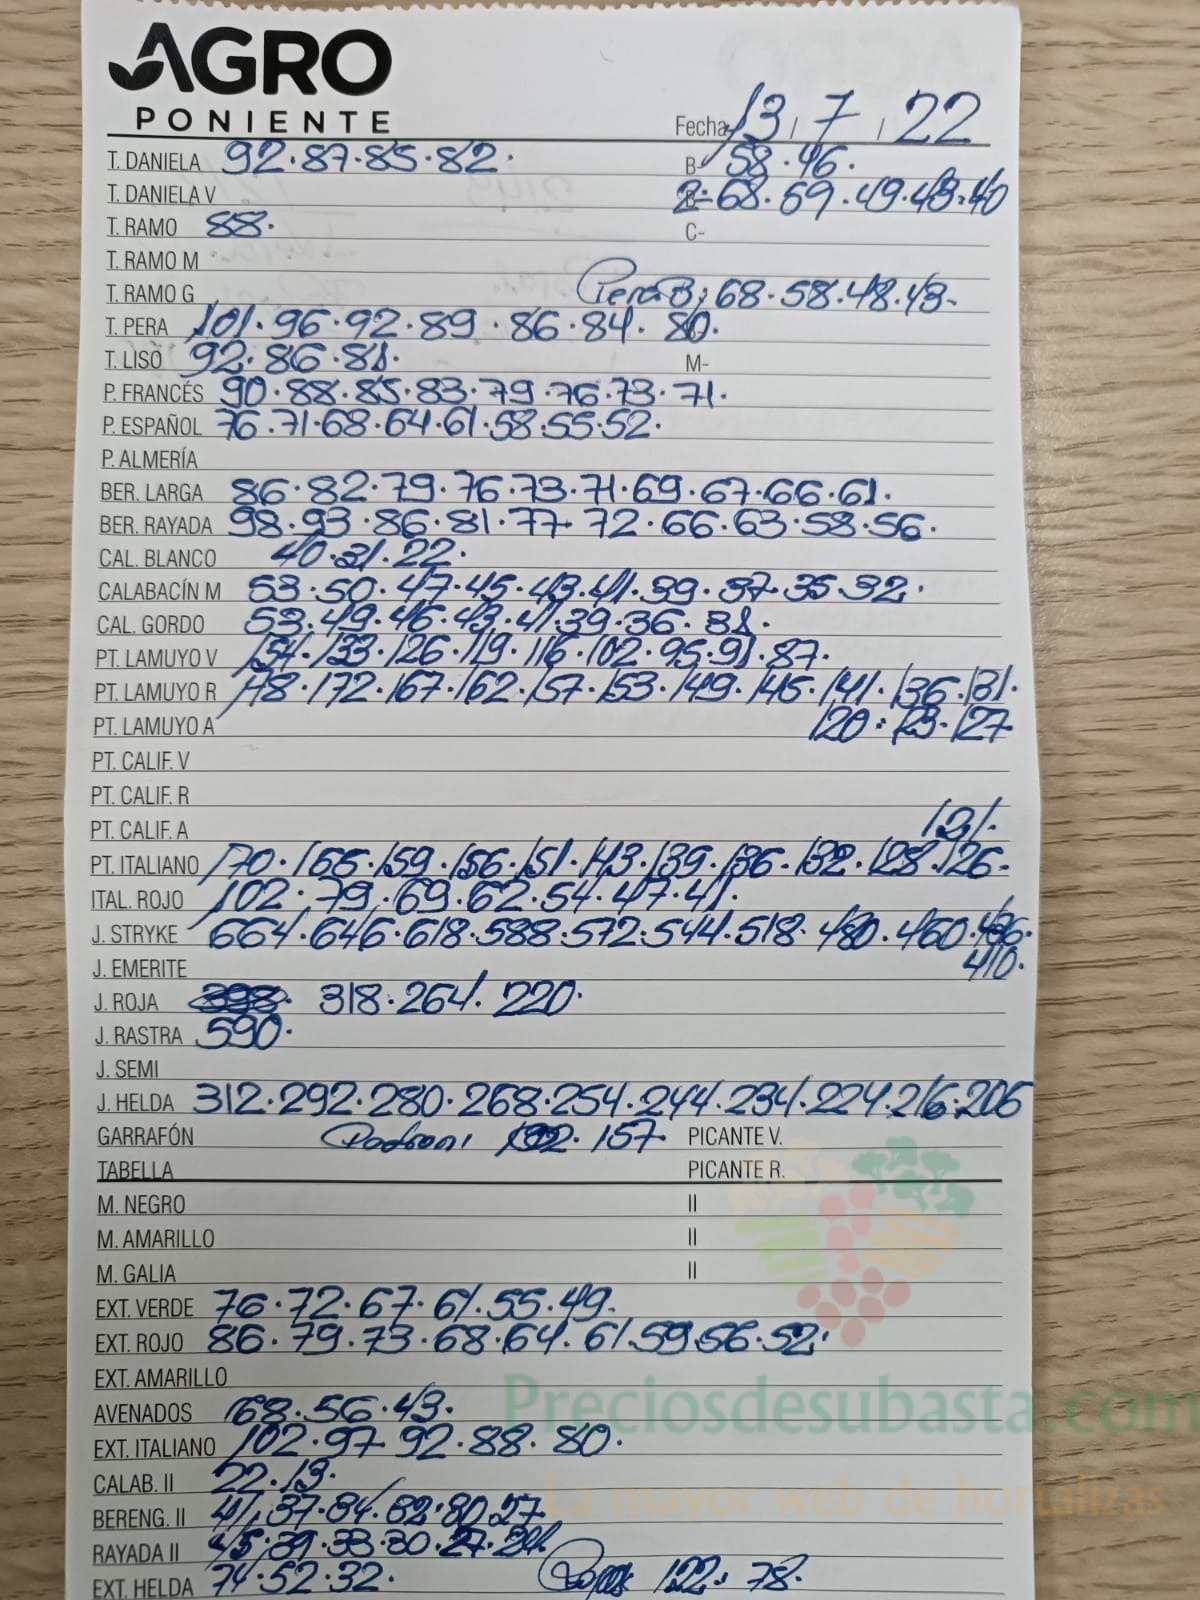 AGRO
PONIENTE
Fecha 13 / 7 / 22
T. DANIELA 92·87·85·82· B- 58·46·
T. DANIELA V 2=68·59·49·43·40
T. RAMO 88· C-
T. RAMO M
T. RAMO G Pera B; 68·58·48·43-
T. PERA 101·96·92·89·86·84·80·
T. LISO 92·86·81· M-
P. FRANCÉS 90·88·85·83·79·76·73·71·
P. ESPAÑOL 76·71·68·64·61·58·55·52·
P. ALMERÍA
BER. LARGA 86·82·79·76·73·71·69·67·66·61·
BER. RAYADA 98·93·86·81·77·72·66·63·58·56·
CAL. BLANCO 40·31·22·
CALABACÍN M 53·50·47·45·43·41·39·37·35·32·
CAL. GORDO 53·49·46·43·41·39·36·31·
PT. LAMUYO V 154·133·126·119·116·102·95·91·87·
PT. LAMUYO R 178·172·167·162·157·153·149·145·141·136·131·
PT. LAMUYO A 120·123·127
PT. CALIF. V
PT. CALIF. R
PT. CALIF. A 121·
PT. ITALIANO 170·165·159·156·151·143·139·136·132·128·126-
ITAL. ROJO 102·79·69·62·54·47·41·
J. STRYKE 664·646·618·588·572·544·518·480·460·436·
J. EMERITE 410·
J. ROJA 318·264·220·
J. RASTRA 590·
J. SEMI
J. HELDA 312·292·280·268·254·244·234·224·216·206
GARRAFÓN Padron; 157· PICANTE V.
TABELLA PICANTE R.
M. NEGRO II
M. AMARILLO II
M. GALIA II
EXT. VERDE 76·72·67·61·55·49·
EXT. ROJO 86·79·73·68·64·61·59·56·52·
EXT. AMARILLO
Preciosdesubasta.com
AVENADOS 168·56·43·
EXT. ITALIANO 102·97·92·88·80·
CALAB. II 22·13·
La mayor web de hortalizas
BERENG. II 41·37·34·32·30·27
RAYADA II 45·39·33·30·27·
EXT. HELDA 74·52·32· 122·78·